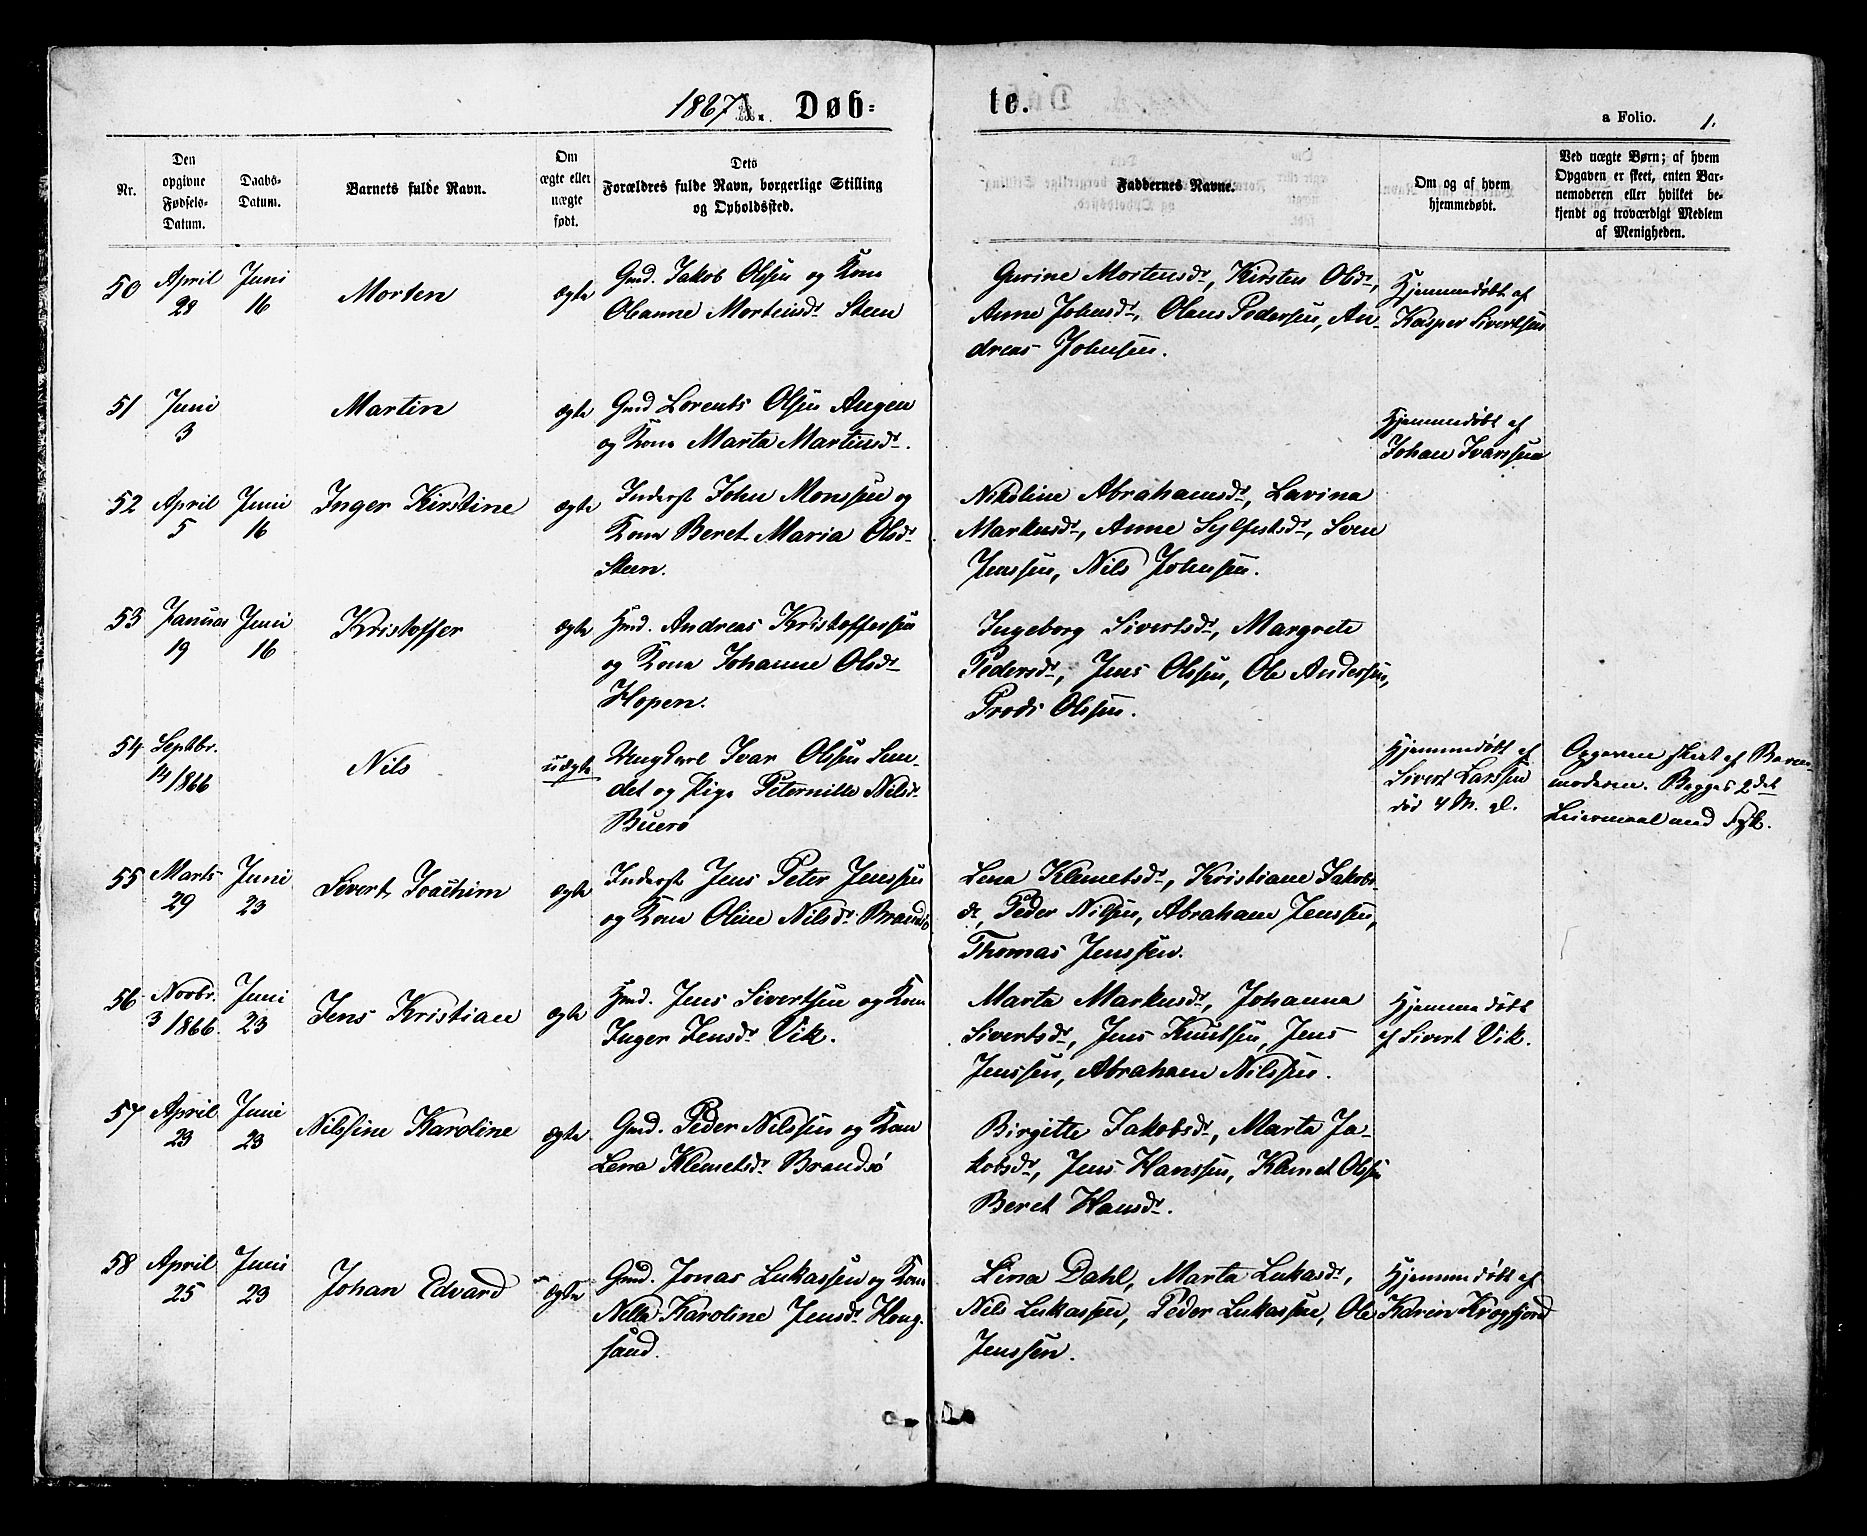 1867 A. Døb=
te.
a Folio. 1.
Nr.
Den
opgivne
Fødsels-
Datum.
Daabs-
Datum.
Barnets fulde Navn.
Om
ægte eller
uægte
født.
Dets
Forældres fulde Navn, borgerlige Stilling
og Opholdssted.
Faddernes Navne.
Om og af hvem
hjemmedøbt.
Ved uægte Børn; af hvem
Opgaven er skeet, enten Bar-
nemoderen eller hvilket be-
kjendt og troværdigt Medlem
af Menigheden.
50
April
28
Juni
16
Morten
ægte
Gmd. Jakob Olssen og Kone
Oleanne Mortensdr Steen
Gurine Mortensdr, Kirsten Olsdr,
Anne Johnsdr, Olaus Pedersen, An-
dreas Johnsen.
Hjemmedøbt af
Kasper Sivertsen
51
Juni
3
Martin
ægte
Gmd Lorents Olsen Angen
og Kone Marta Martinsdr.
Hjemmedøbt af
Johan Ivarssen
52
April
5
Juni
16
Inger Kirstine
ægte
Inderst John Monssen og
Kone Beret Maria Olsdr
Steen.
Nikoline Abrahamsdr, Lavina
Markusdr, Anne Sylfestsdr, Sven
Jenssen, Nils Johnsen.
53
Januar
19
Juni
16
Kristoffer
ægte
Hmd. Andreas Kristoffersen
og Kone Johanne Olsdr
Hopen.
Ingeborg Sivertsdr, Margrete
Pedersdr, Jens Olssen, Ole Anderssen,
Frods Olssen.
54
Septbr.
14 1866
Nils
uægte
Ungkarl Ivar Olssen Sun-
det og Pige Peternille Nilsdr
Buerø
Hjemmedøbt af
Sivert Larssen
død 4 M. gl.
Opgaven skeet af Barne-
moderen. Begges 2det
Leiermaal med
55
Marts
29
Juni
23
Sivert Joachim
ægte
Inderst Jens Peter Jenssen
og Kone Oline Nilsdr Brandsø
Lena Klemetsdr, Kristiane Jakobs-
dr, Peder Nilsen, Abraham Jenssen,
Thomas Jenssen.
56
Novbr.
3 1866.
Juni
23
Jens Kristian
ægte
Hmd. Jens Sivertsen og Kone
Inger Jensdr Vik.
Marta Markusdr, Johanna
Sivertsdr, Jens Knutsen, Jens
Jenssen, Abraham Nilssen.
Hjemmedøbt
af Sivert Vik.
57
April
23
Juni
23
Nilssine Karoline
ægte
Gmd. Peder Nilssen og Kone
Lena Klemetsdr Brandsø
Birgitte Jakobsdr, Marta Ja-
kobsdr, Jens Hanssen, Klemet Olssen
Beret Hansdr.
58
April
25
Juni
23
Johan Edvard
ægte
Gmd. Jonas Lukassen og Kone
Nella Karoline Jensdr Houg-
sand.
Lina Dahl, Marta Lukasdr,
Nils Lukassen, Peder Lukassen, Ole
Jenssen.
Hjemmedøbt af
Karen Krogfjord